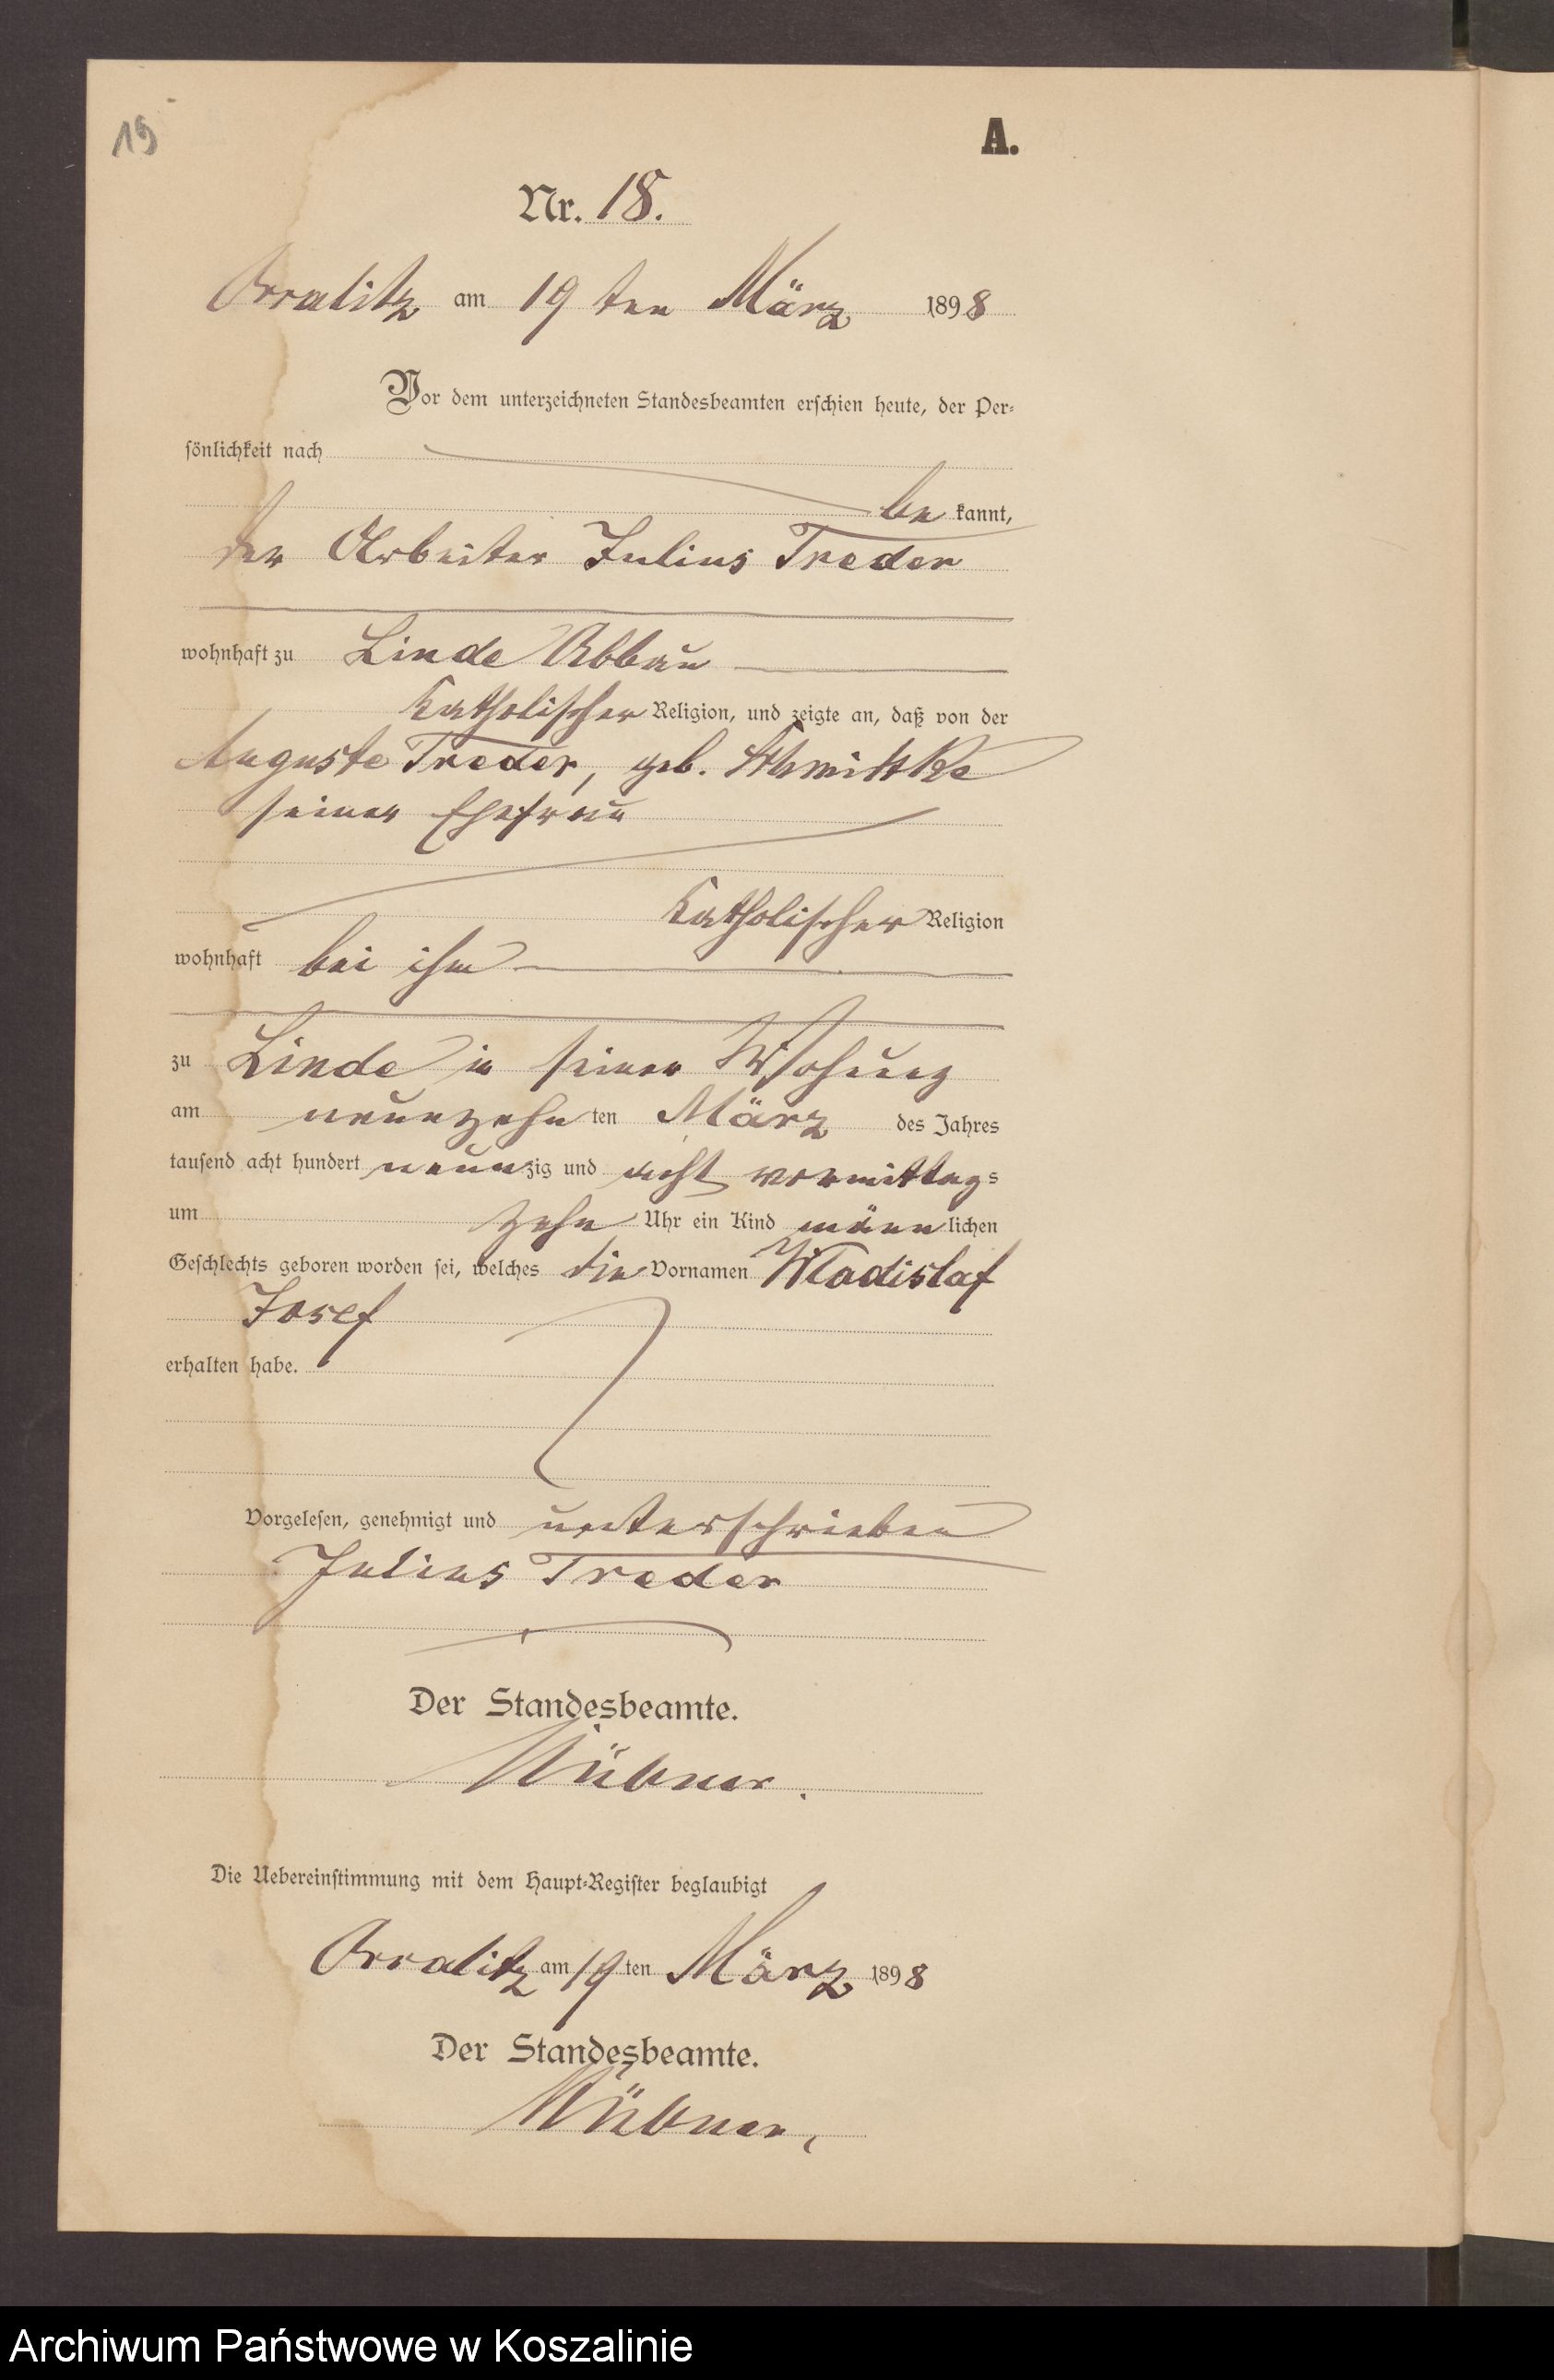 19
A.
Nr. 18.
Prralitz am 19 ten März 1898
Vor dem unterzeichneten Standesbeamten erschien heute, der Per-
sönlichkeit nach
be kannt,
der Arbeiter Julius Treder
wohnhaft zu Linde Abbau
Katholischer Religion, und zeigte an, daß von der
Auguste Treder, geb. Schmittke
seiner Ehefrau
Katholischer Religion
wohnhaft bei ihm
zu Linde in seiner Wohung
am neunzehn ten März des Jahres
tausend acht hundert neunzig und acht vormittags
um zehn Uhr ein Kind männlichen
Geschlechts geboren worden sei, welches die Vornamen Wladislaf
Josef
erhalten habe.
Vorgelesen, genehmigt und unterschrieben
Julius Treder
Der Standesbeamte.
Die Uebereinstimmung mit dem Haupt-Register beglaubigt
Prralitz am 19 ten März 1898
Der Standesbeamte.
Archiwum Państwowe w Koszalinie